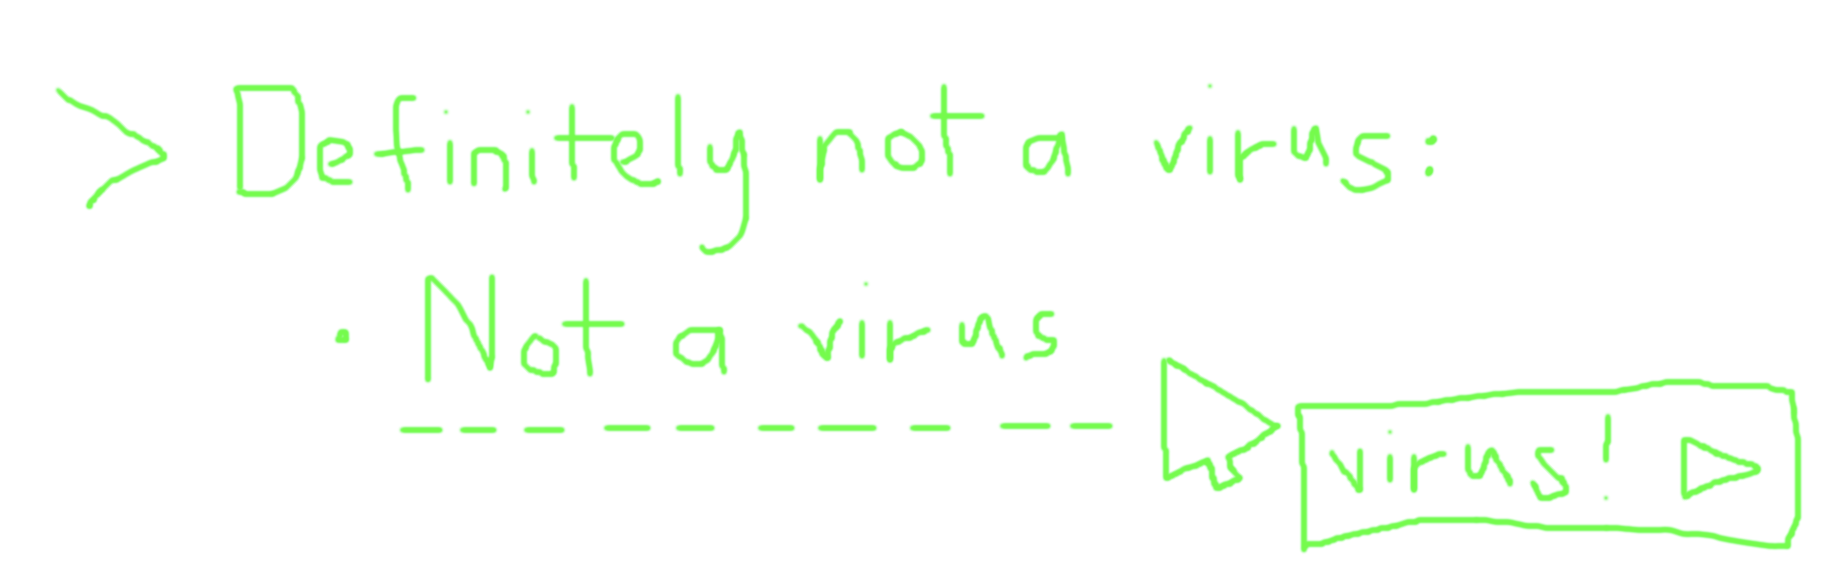 > Definitely not a virus:
· Not a virus
virus!